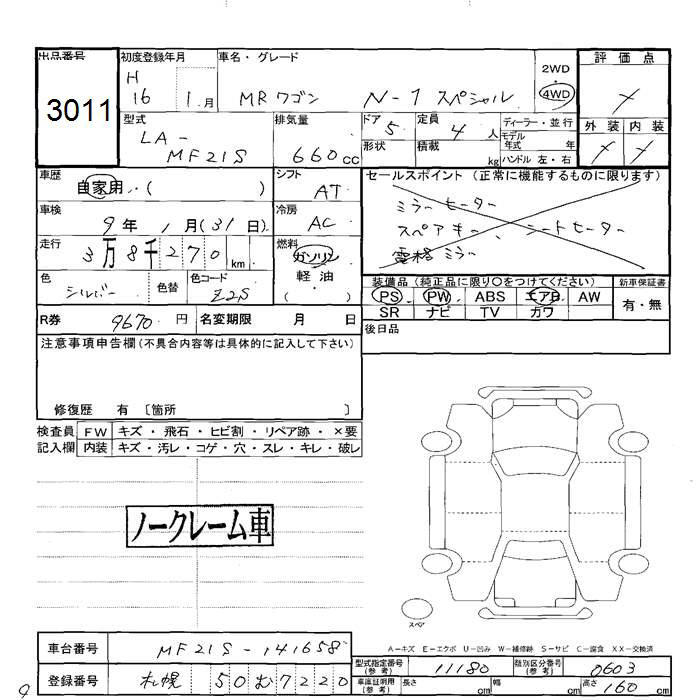 出品番号
3011
初度登録年月
H
16 1 月
車名・グレード
MRワゴン N-1 スペシャル
2WD
4WD
評価点
外装 内装
型式
LA-
MF21S
排気量
660cc
ドア
5
形状
定員
4 人
積載
kg
ディーラー・並行
モデル
年式 年
ハンドル 左・右
車歴
自家用・( )
シフト
AT
車検
9 年 1 月(31 日)
冷房
AC
走行
3万8千270 km
燃料
ガソリン
軽油
( )
色
シルバー
色替
色コード
Z2S
セールスポイント(正常に機能するものに限ります)
ミラーヒーター
スペアキー、シートヒーター
電格ミラー
装備品(純正品に限り○をつけてください)
PS PW ABS エアB AW
SR ナビ TV カワ
新車保証書
有・無
R券 9670 円
名変期限 月 日
後日品
注意事項申告欄(不具合内容等は具体的に記入して下さい)
修復歴 有 〔箇所 〕
検査員
記入欄
FW キズ・飛石・ヒビ割・リペア跡・×要
内装 キズ・汚レ・コゲ・穴・スレ・キレ・破レ
ノークレーム車
スペア
A-キズ E-エクボ U-凹み W-補修跡 S-サビ C-腐食 XX-交換済
車台番号 MF21S-141658
登録番号 札幌 50む7220
型式指定番号
(参考)
11180
類別区分番号
(参考)
0603
車庫証明用
(参考)
長さ cm
幅 cm
高さ 160 cm
9